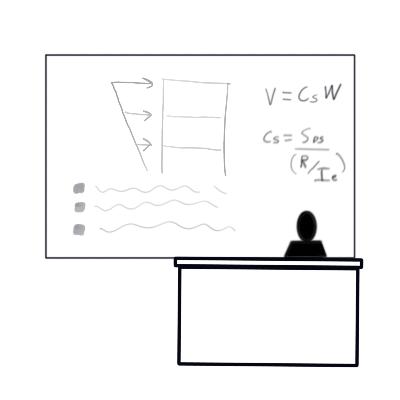 V = Cs W
Cs = SDS
(R/Ie)